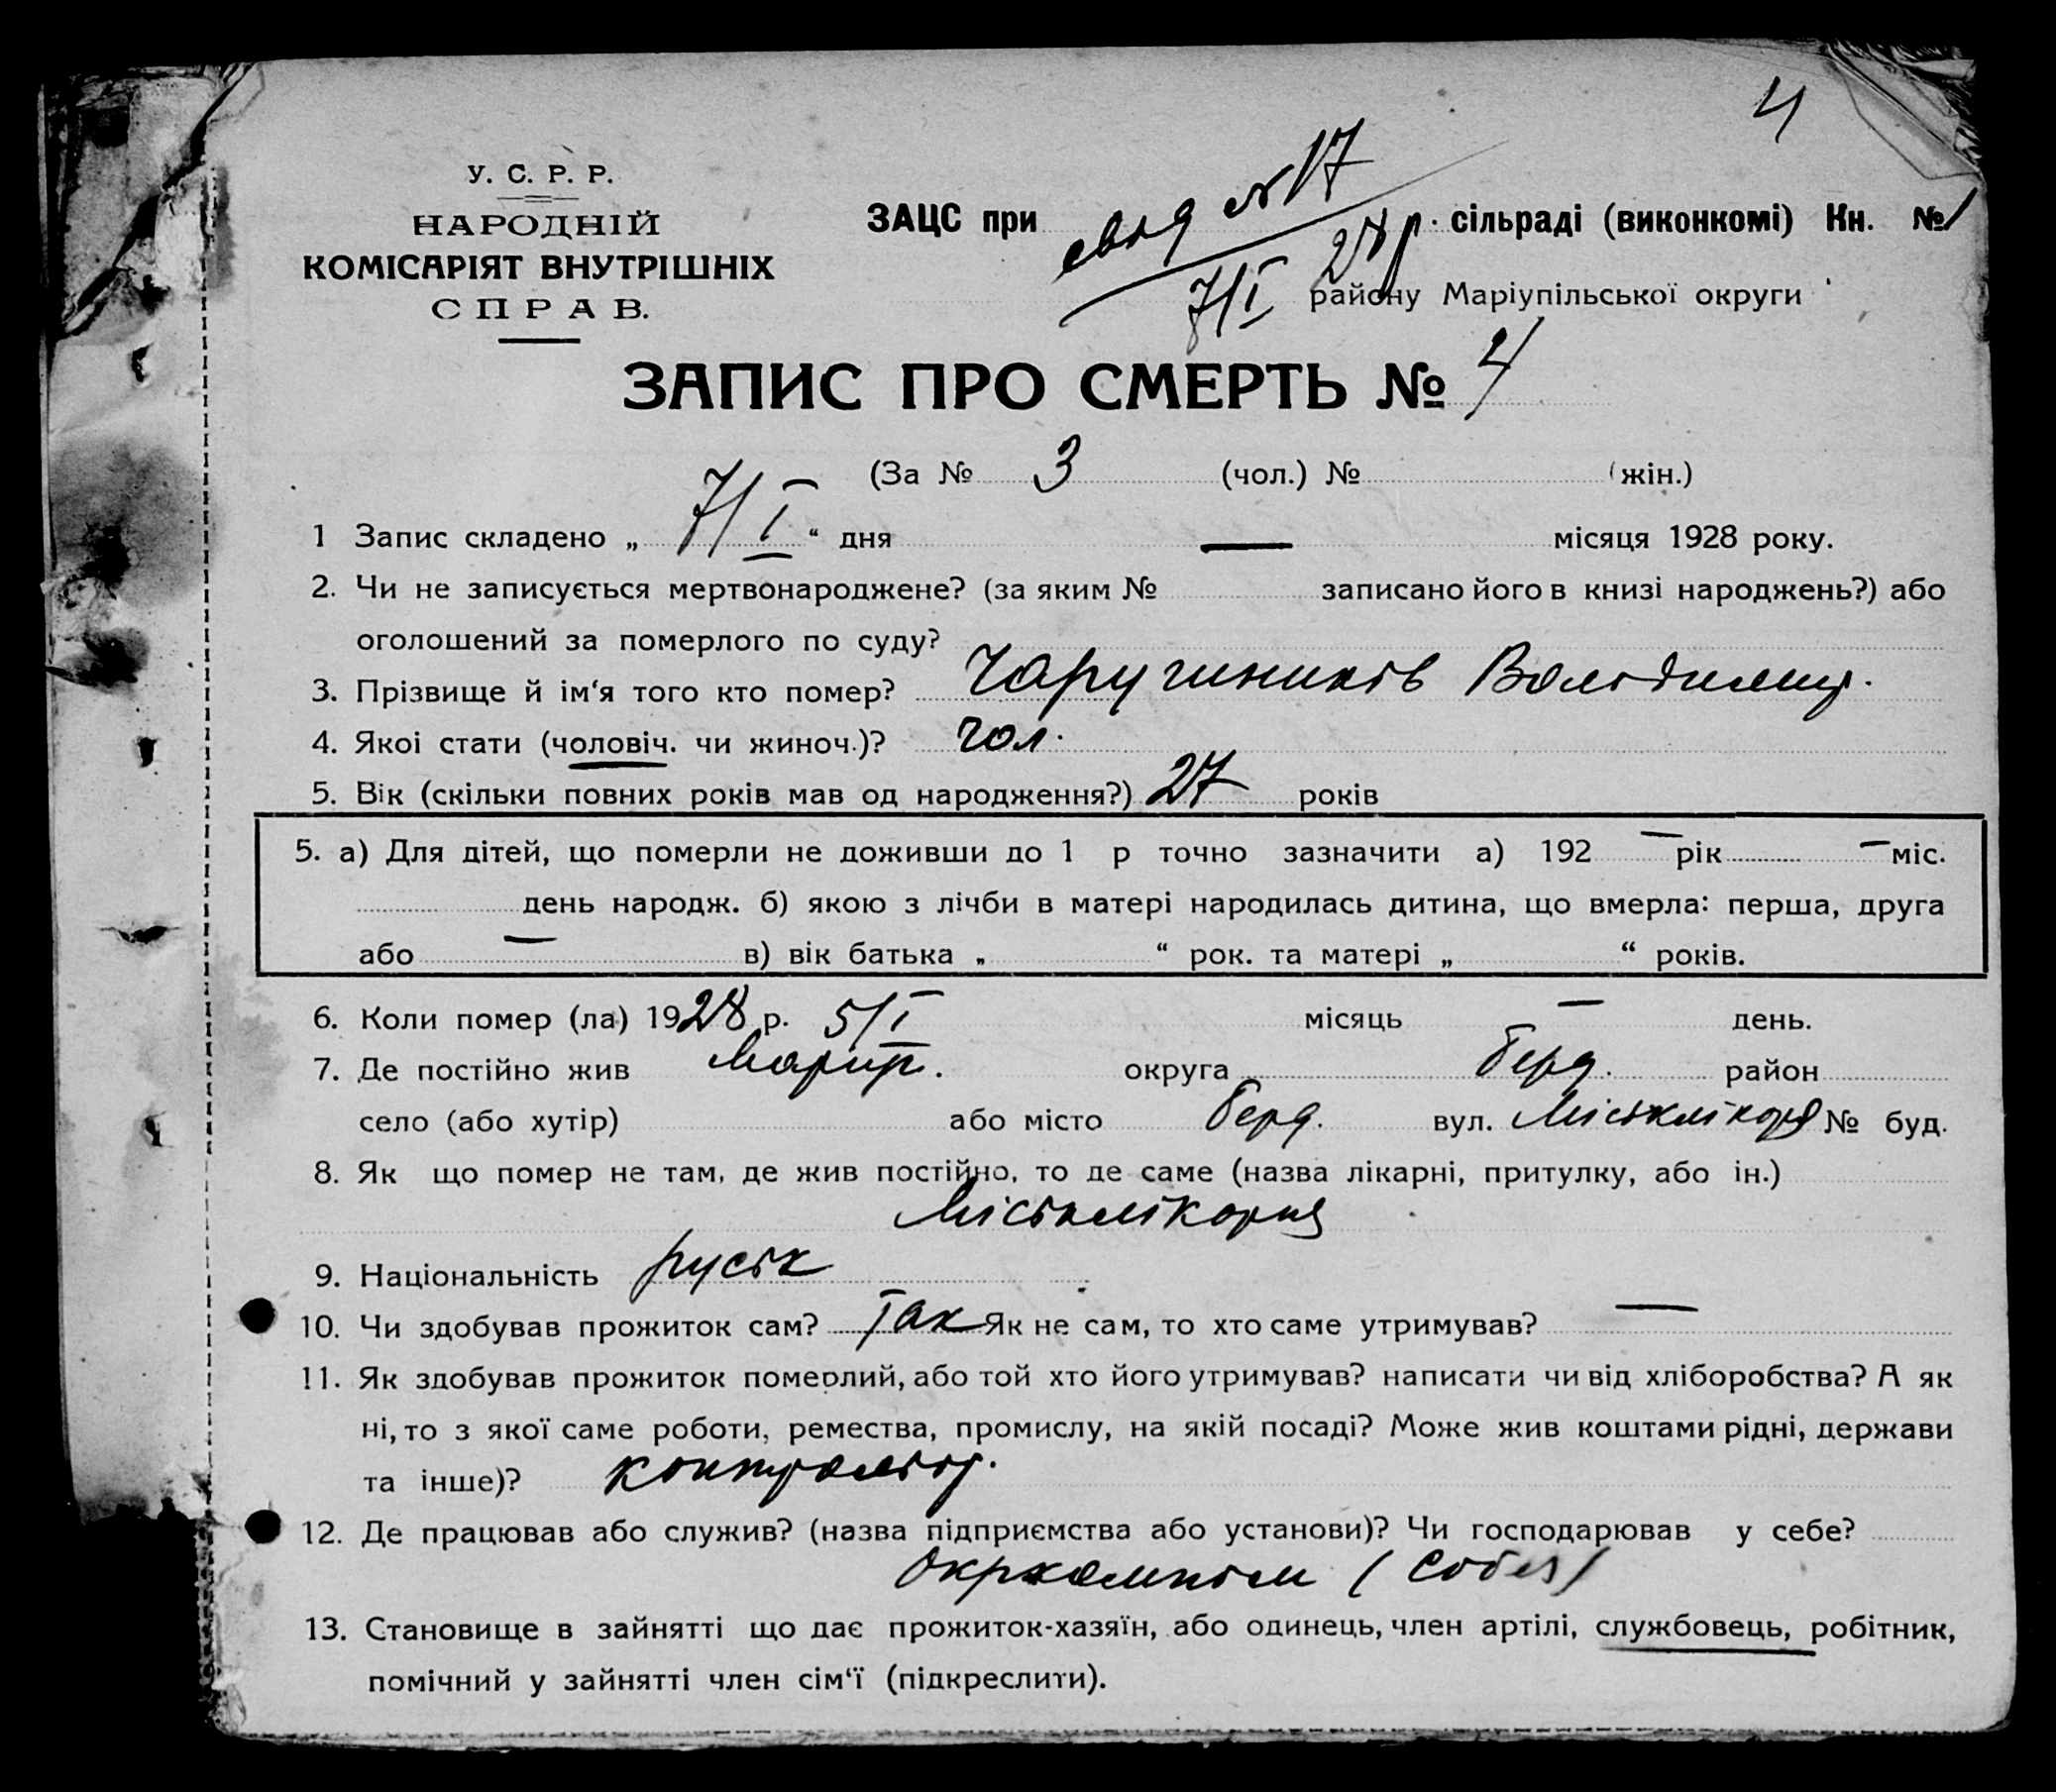 4
У. С. Р. Р.
НАРОДНІЙ
КОМІСАРІЯТ ВНУТРІШНІХ
СПРАВ.
ЗАЦС при свид №17 28 р. сільраді (виконкомі) Кн. № 1
7/I району Маріупільської округи
ЗАПИС ПРО СМЕРТЬ № 4
(За № 3 (чол.) № (жін.)
1 Запис складено „ 7/I “ дня — місяця 1928 року.
2. Чи не записується мертвонароджене? (за яким № записано його в книзі народжень?) або
оголошений за померлого по суду?
3. Прізвище й ім‘я того кто помер? Володимир.
4. Якоі стати (чоловіч. чи жиноч.)? чол.
5. Вік (скільки повних років мав од народження?) 27 років
5. а) Для дітей, що померли не доживши до 1 р точно зазначити а) 192 — рік — міс.
день народж. б) якою з лічби в матері народилась дитина, що вмерла: перша, друга
або — в) вік батька „ “ рок. та матері „ “ років.
6. Коли помер (ла) 1928 р. 5/I місяць — день.
7. Де постійно жив Маріуп. округа Берд. район
село (або хутір) або місто Берд. вул. Міськлікарня № буд.
8. Як що помер не там, де жив постійно, то де саме (назва лікарні, притулку, або ін.)
Міськлікарня
9. Національність русск
10. Чи здобував прожиток сам? Так Як не сам, то хто саме утримував? —
11. Як здобував прожиток померлий, або той хто його утримував? написати чи від хліборобства? А як
ні, то з якої саме роботи, ремества, промислу, на якій посаді? Може жив коштами рідні, держави
та інше)? контрольор.
12. Де працював або служив? (назва підприємства або установи)? Чи господарював у себе?
Окркомпом
13. Становище в зайнятті що дає прожиток-хазяїн, або одинець, член артілі, службовець, робітник,
помічний у зайнятті член сім‘ї (підкреслити).